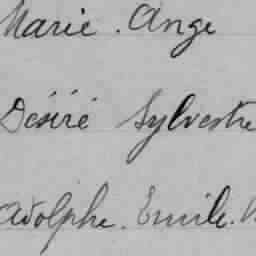 Marie. Ange
Désiré Sylvestre
Adolphe. Emile.